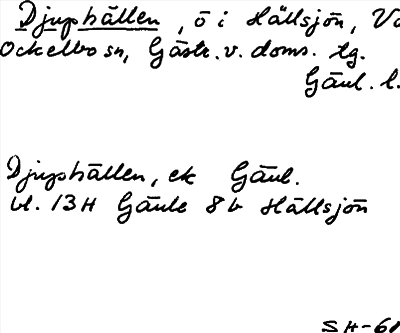 Djuphällen, ö i Hällsjön,
Ockelbo sn, Gästr. v. doms. tg.
Gävl. l.
Djuphällen, ek Gävl.
bl. 13H Gävle 8b Hällsjön
SH-61